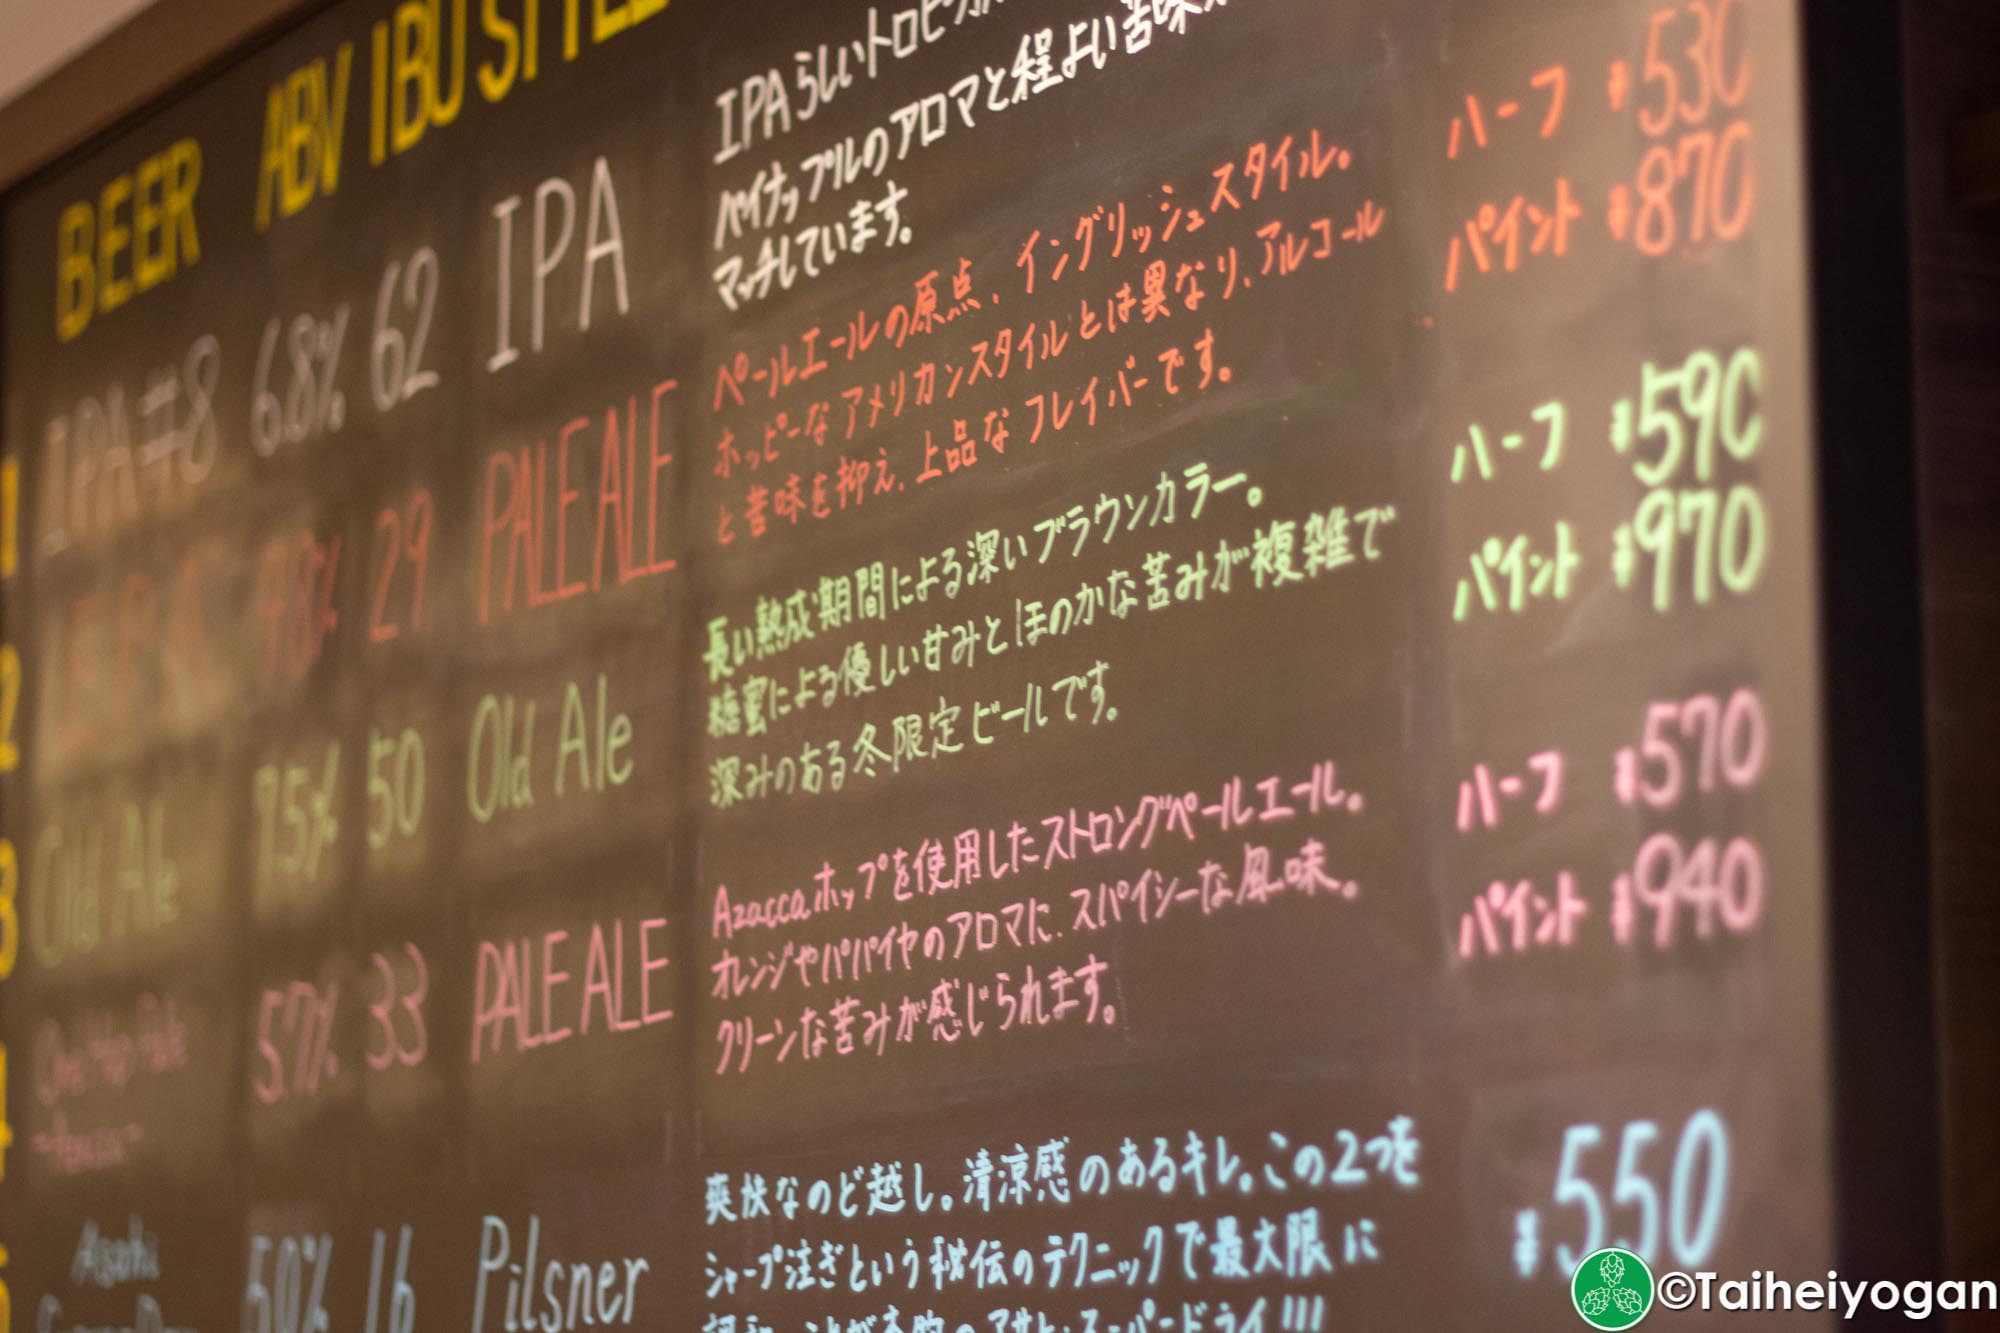 BEER ABV IBU STYLE
1 IPA#8 6.8% 62 IPA
IPAらしいトロピカル
パイナップルのアロマと程よい苦味が
マッチしています。
ハーフ ¥530
パイント ¥870
2 29 PALE ALE
ペールエールの原点、イングリッシュスタイル。
ホッピーなアメリカンスタイルとは異なり、アルコール
と苦味を抑え、上品なフレイバーです。
ハーフ ¥590
パイント ¥970
3 Old Ale 7.5% 50 Old Ale
長い熟成期間による深いブラウンカラー。
糖蜜による優しい甘みとほのかな苦みが複雑で
深みのある冬限定ビールです。
ハーフ ¥570
パイント ¥940
4 One Hop Pale 5.7% 33 PALE ALE
Azaccaホップを使用したストロングペールエール。
オレンジやパパイヤのアロマに、スパイシーな風味。
クリーンな苦みが感じられます。
5 Asahi 5.0% 16 Pilsner
爽快なのど越し。清涼感のあるキレ。この2つを
シャープ注ぎという秘伝のテクニックで最大限に
¥550
©Taiheiyogan